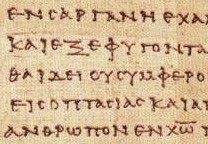 ΕΝϹΑΡΓΑΝΗΕΧΑ
ΚΑΙΕΞΕΦΥΓΟΝΤΑ
ΘΑΙΔΕΙΟΥϹΥΜΦΕΡΟ
ΕΙϹΟΠΤΑϹΙΑϹΚΑΙΑ
ΑΝΘΡΩΠΟΝΕΝΧ̅Ω̅